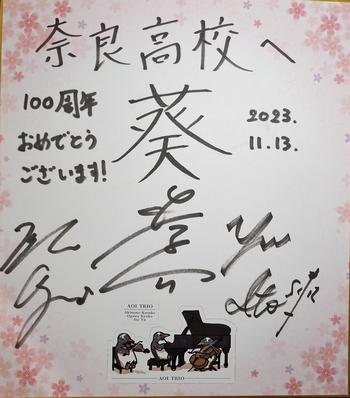 奈良高校へ
100周年
おめでとう
ございます!
葵
2023.
11.13.
AOI TRIO
Akimoto Kosuke
Ogawa Kyoko
Ito Yu
AOI TRIO